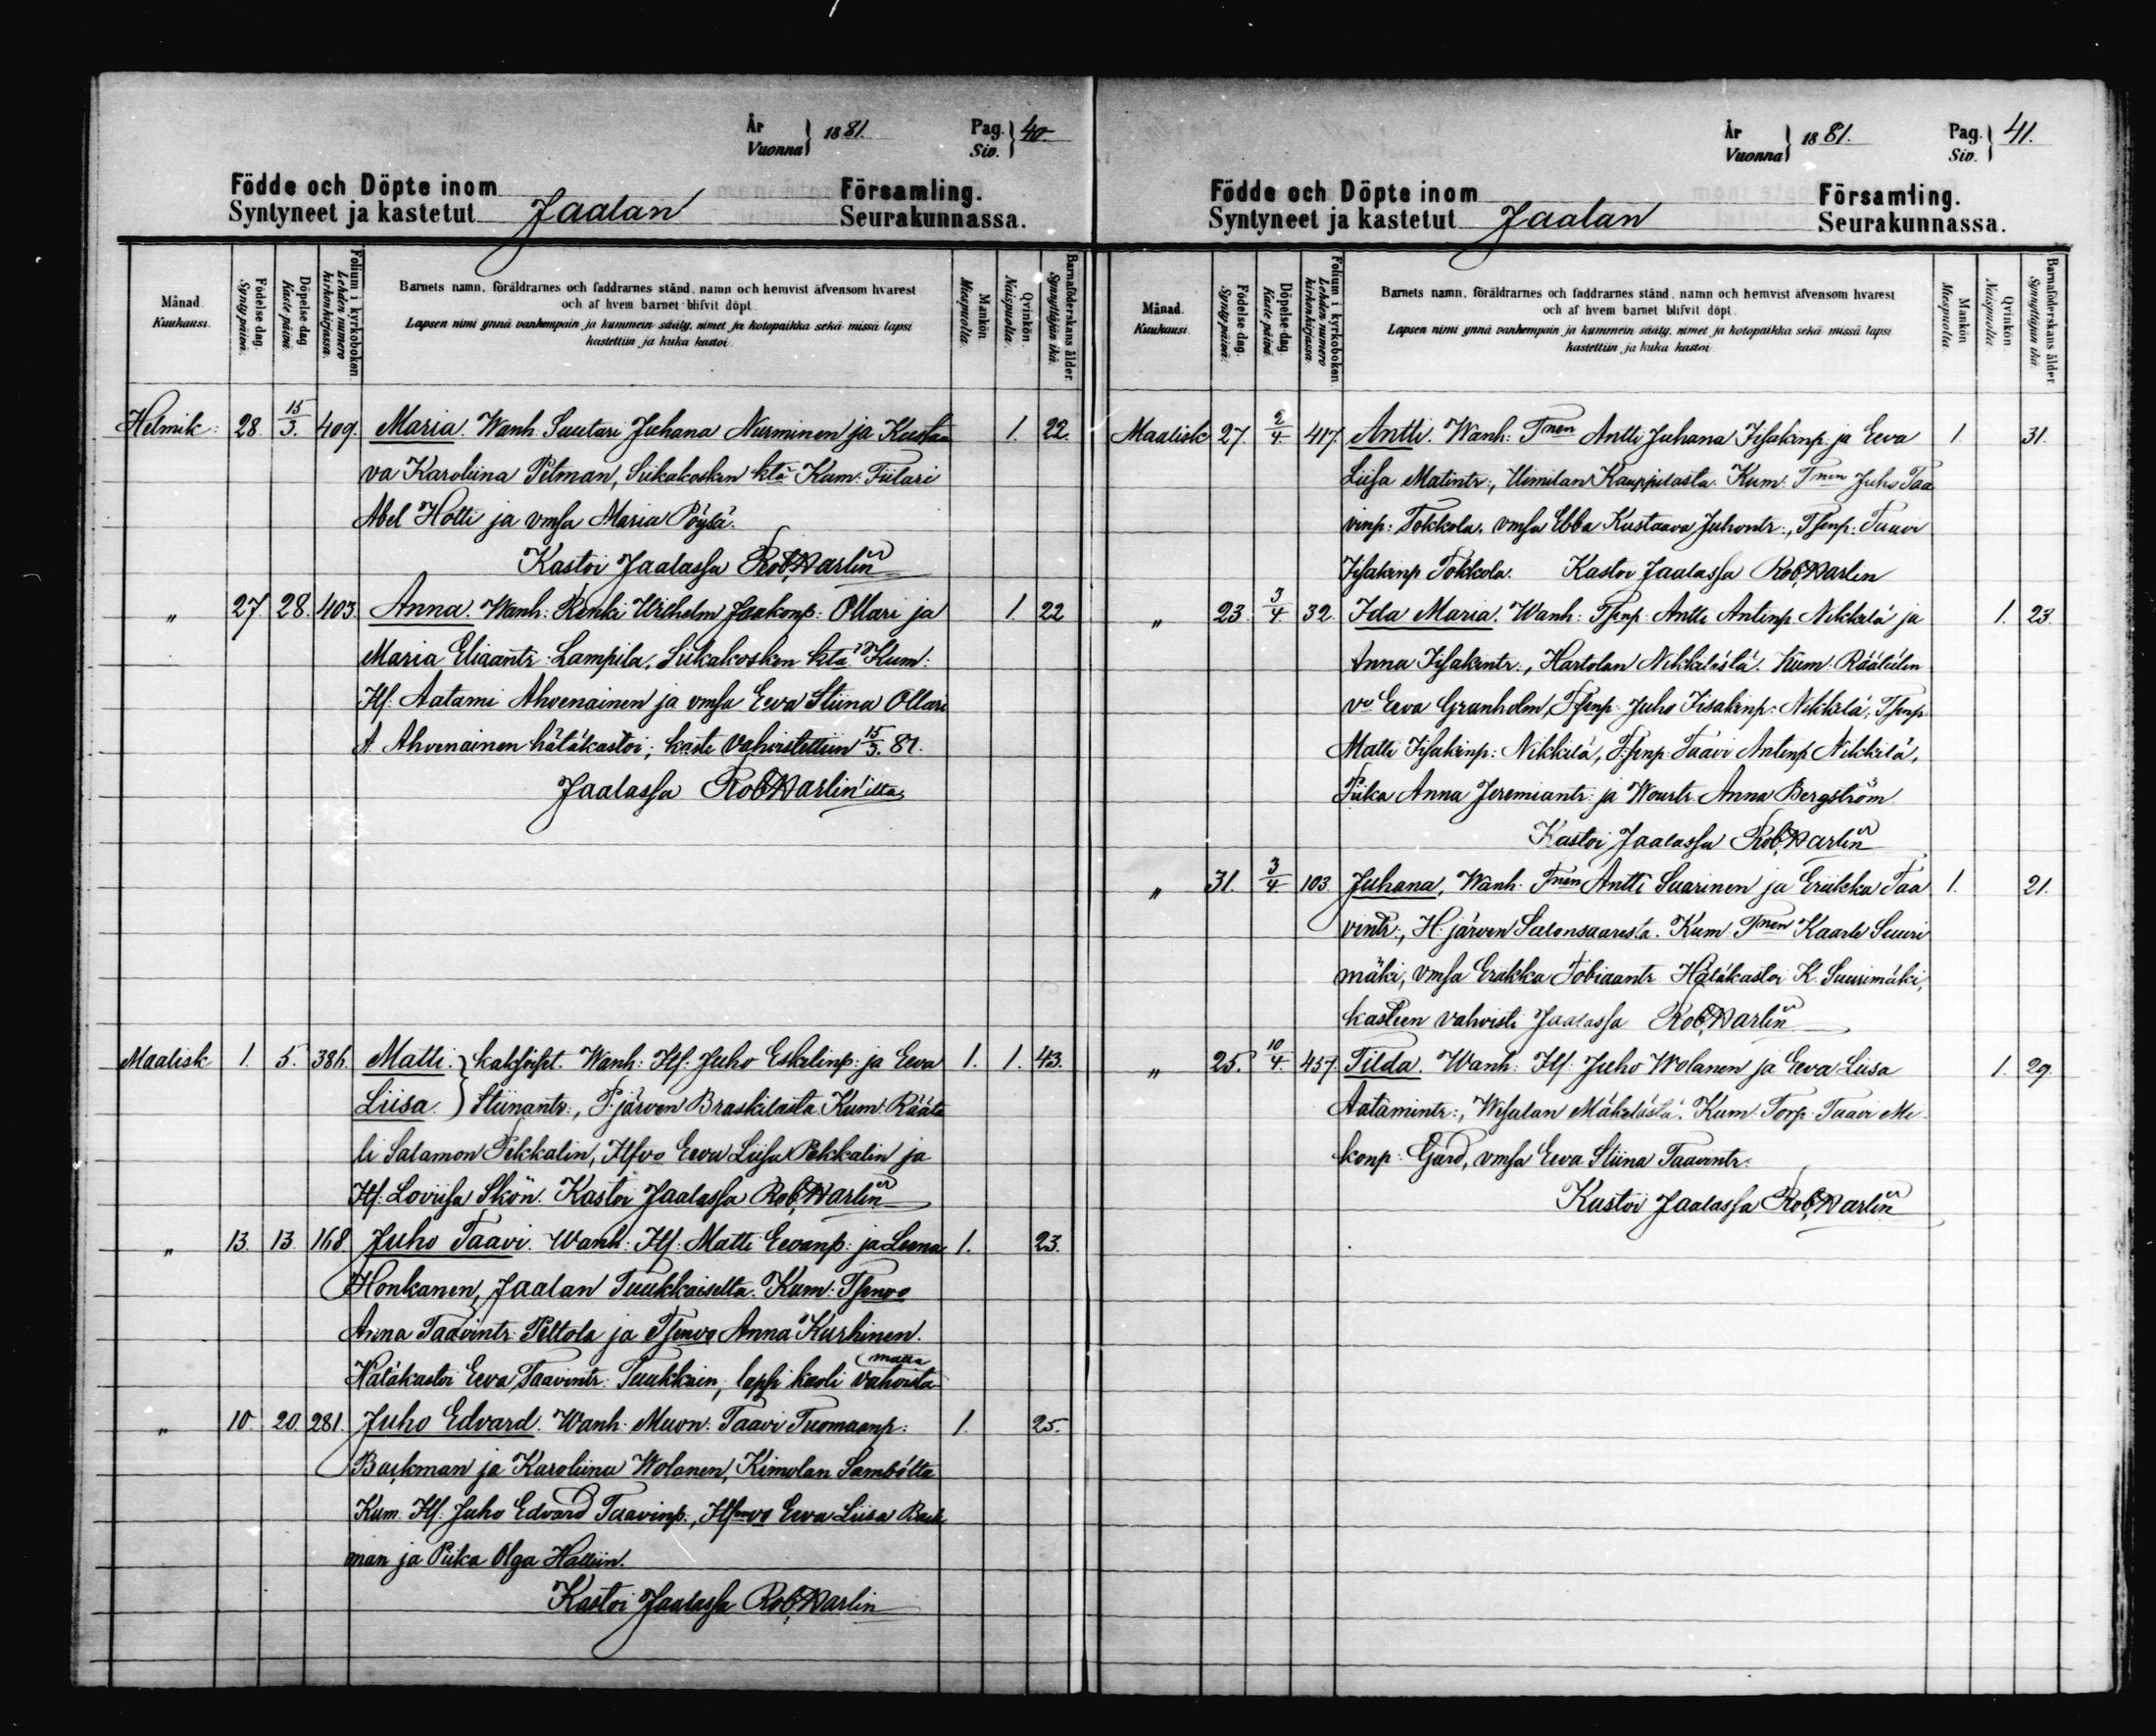 År
Vuonna } 1881.
Pag.
Siv. } 40.
Födde och Döpte inom
Syntyneet ja kastetut Jaalan
Församling.
Seurakunnassa.
Månad.
Kuukausi.
Födelse dag.
Synty päivä.
Döpelse dag.
Kaste päivä.
Folium i kyrkoboken.
Lehden numero
kirkonkirjassa.
Barnets namn, föräldrarnes och faddrarnes stånd, namn och hemvist äfvensom hvarest
och af hvem barnet blifvit döpt.
Lapsen nimi ynnä vanhempain ja kummein sääty, nimet ja kotopaikka sekä missä lapsi
kastettiin ja kuka kastoi.
Mankön.
Miespuolta.
Qvinkön.
Naispuolta.
Barnaföderskans ålder.
Synnyttäjän ikä.
Helmik: 28. 15/3. 409. Maria. Wanh. Suutari Juhana Nurminen ja Kustaa 1. 22.
va Karoliina Pitman, Siikakosken ktä Kum: Tiilari
Abel Hotti ja vmsa Maria Pöysä.
Kastoi Jaalassa Rob. Warlin
" 27. 28. 403. Anna. Wanh: Renki Wilhelm Jaakonp: Ollari ja 1. 22
Maria Eliaantr: Lampila, Siikakosken ktä. Kum:
Itf: Aatami Ahvenainen ja vmsa Eeva Stiina Ollari
A. Ahvenainen hätäkastoi; kaste vahvistettiin 15/3. 81.
Jaalassa Rob Warlin'ilta,
Maalisk 1. 5. 386. Matti. } kaksoiset. Wanh: Itf: Juho Eskelinp: ja Eeva 1. 1. 43.
Liisa. } Stiinantr:, P:järven Braskilasta Kum: Räätä
li Salamon Pekkalin, Itfvo Eeva Liisa Pekkalin ja
Itf: Loviisa Skön. Kastoi Jaalassa Rob. Warlin
" 13. 13. 168 Juho Taavi. Wanh: Itf: Matti Eevanp: ja Leena 1. 23.
Honkanen, Jaalan Tuukkaiselta. Kum: Tsenvo
Anna Taavintr: Peltola ja Tsenvo Anna Kurhinen.
Hätäkastoi Eeva Taavintr: Tuukkain, lapsi kuoli vahvista
matta
" 10. 20. 281. Juho Edvard. Wanh: Muon: Taavi Tuomaanp: 1. 25.
Backman ja Karoliina Wolanen, Kimolan
Kum. Itf: Juho Edvard Taavinp:, Itfsenvo Eeva Liisa Back
man ja Piika Olga Hallin.
Kastoi Jaalassa Rob. Warlin
År
Vuonna } 1881.
Pag.
Siv. } 41.
Födde och Döpte inom
Syntyneet ja kastetut Jaalan
Församling.
Seurakunnassa.
Månad.
Kuukausi.
Födelse dag.
Synty päivä.
Döpelse dag.
Kaste päivä.
Folium i kyrkoboken.
Lehden numero
kirkonkirjassa.
Barnets namn, föräldrarnes och faddrarnes stånd, namn och hemvist äfvensom hvarest
och af hvem barnet blifvit döpt.
Lapsen nimi ynnä vanhempain ja kummein sääty, nimet ja kotopaikka sekä missä lapsi
kastettiin ja kuka kastoi.
Mankön
Miespuolta.
Qvinkön
Naispuolta.
Barnaföderskans ålder.
Synnyttäjän ikä.
Maalisk 27. 2/4. 417. Antti. Wanh: Tnen Antti Juhana Iisakinp: ja Eeva 1. 31.
Liisa Matintr:, Uimilan Kauppilasta. Kum: Tnen Juho Taa
vinp: Tokkola, vmsa Ebba Kustaava Juhontr:, Tsenp: Taavi
Iisakinp Tokkola. Kastoi Jaalassa Rob. Warlin
" 23. 3/4. 32. Ida Maria. Wanh: Tsenp: Antti Antinp. Nikkilä ja 1. 23.
Anna Iisakintr:, Hartolan Nikkilästä. Kum: Räätälin
vo Eeva Granholm, Tsenp: Juho Iisakinp: Nikkilä, Tsenp
Matti Iisakinp: Nikkilä, Tsenp: Taavi Antinp Nikkilä,
Piika Anna Jeremiantr: ja Wourtr. Anna Bergström.
Kastoi Jaalassa Rob. Warlin
" 31. 3/4. 103. Juhana. Wanh: Tnen Antti Saarinen ja Eriikka Taa 1. 21.
vintr:, H:järven Salonsaaresta. Kum: Tnen Kaarle Suuri
mäki, vmsa Erikka Tobiaantr. Hätäkastoi K. Suurimäki,
kasteen vahvisti Jaalassa Rob. Warlin
" 25. 10/4. 457. Tilda. Wanh: Itf: Juho Wolanen ja Eeva Liisa 1. 29.
Aatamintr:, Wesalan Mäkelästä. Kum. Torp. Taavi Mi
konp: Gård, vmsa Eeva Stiina Taavintr:
Kastoi Jaalassa Rob. Warlin